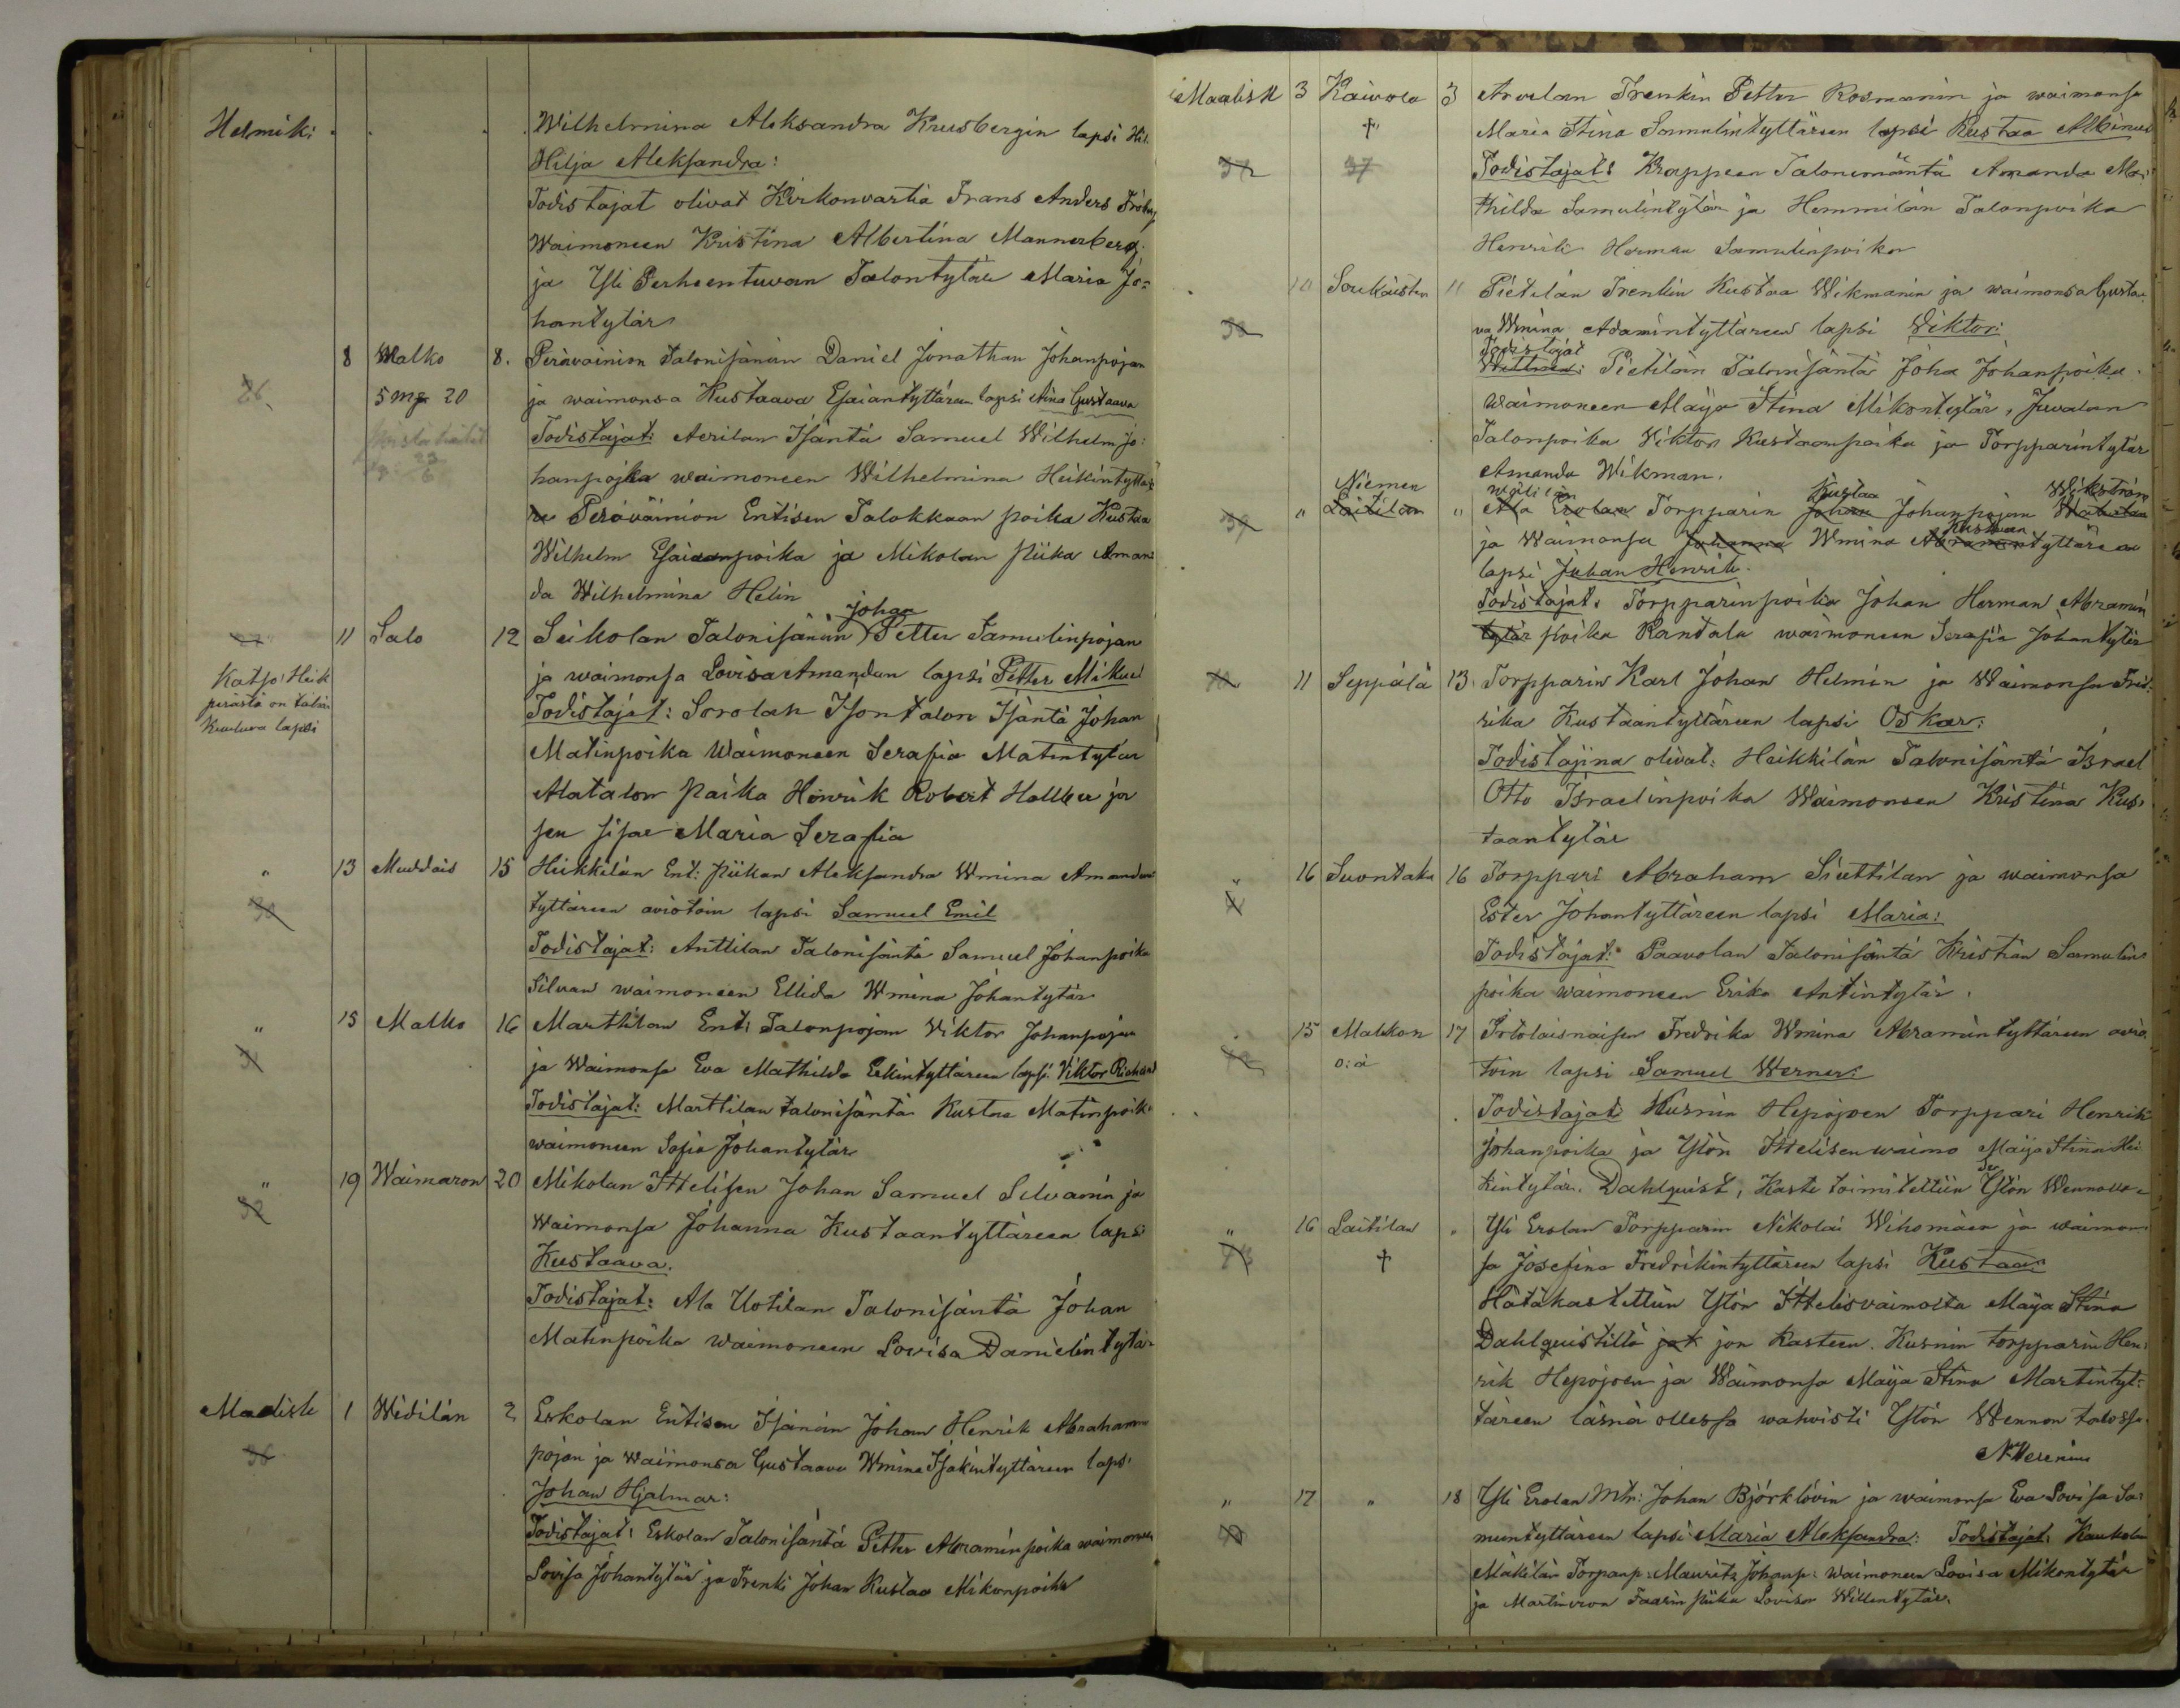 Helmik:
Wilhelmina Aleksandra Krusbergin lapsi Hil.
Hilja Aleksandra:
Todistajat olivat Kirkonvartia Frans Anders
Waimoneen Kristina Albertina Mannerberg.
ja Yli Perheentuvan Talontytär Maria Jo=
hantytär
8 Malko 8. Perävainion talonisänän Daniel Jonathan Johanpojan
5 mg 20 ja waimonsa Kustaava Esaiantyttären lapsi Aina Gustaava
Todistajat: Aerilan Isäntä Samuel Wilhelm Jo:
hanpojka waimoneen Wilhelmina Heikintyttär
Peräväinion Entisen Talokkaan poika Kustaa
Wilhelm Esaianpoika ja Mikolan piika Aman:
da Wilhelmina Helin
Johan
11 Salo 12 Seikolan Talonisänän Petter Samulinpojan
Katso Heik ja waimonsa Lovisa Amandan lapsi Petter Mikael
perästä on tähän Todistajat: Sorolan Isontalon Isäntä Johan
Kuuluva lapsi Matinpoika Waimoneen Serafia Matintytär
Alatalon paika Henrik Robert ja
sen sisar Maria Serafia
" 13 15 Heikkilän Ent: piikan Aleksandra Wmina Amanda
30 tyttäreen aviotoin lapsi Samuel Emil
Todistajat: Anttilan Talonisäntä Samuel Johanpoika
Silvan waimoneen Ellida Wmina Johantytär
" 15 Malko 16 Marttilan Ent: Talonpojan Viktor Johanpojan
31 ja Waimonsa Eva Mathilda Erkintyttäreen lapsi Viktor Richard
Todistajat: Marttilan talonisäntä Kustaa Matinpoika
waimoneen Sofia Johantytär
" 19 Waimaron 20 Mikolan Ittelisen Johan Samuel Selvanin ja
32 Waimonsa Johanna Kustaantyttäreen lapsi
Kustaava.
Todistajat: Ala Uotilan Talonisäntä Johan
Matinpoika waimoneen Lovisa Danielin tytär
Maalisk 1 Widilän 2 Eskolan Entisen Isänän Johan Henrik Abraham
36 pojan ja waimonsa Gustaava Wmina Isakintyttäreen laps.
Johan Hjalmar:
Todistajat: Eskolan Talonisäntä Petter Abramin poika waimoneen
Lovisa Johantytär ja Trenki Johan Kustaa Mikonpoika
Maalisk 3 Kaivola 3 Arvelan Trenkin Petter Rosmanin ja waimonsa
† Maria Stina Samulintyttäreen lapsi Kustaa Albinus
37 37 Todistajat: Krappeen Talonemäntä Amanda Ma:
thilda Samulintytär ja Hemmilän Talonpoika
Henrik Herman Samulinpoika
10 Soukaisten 11 Pietilän Trenkin Kustaa Wikmanin ja waimonsa Gusta:
va Wmina Adamintyttäreen lapsi Viktor:
Todistajat
Pietilän Talonisäntä Joha Johanpoika.
waimoneen Maija Stina Mikontytär, Juvalan
Talonpoika Viktor Kustaanpoika ja Torpparintytär
Amanda Wikman.
Niemen Kustaa Wikström
39 " Laitilan " Ala Erolan Torpparin Johan Johanpojan
Kustaan
ja Waimonsa Johanna Wmina Abramintyttäreen
lapsi Juhan Henrik.
Todistajat: Torpparinpoika Johan Herman Abramin
tytär poika Randala waimoneen Serafia Johantytär
11 Seppälä 13 Torpparin Karl Johan Helmin ja Waimonsa Fred:
rika Kustaantyttäreen lapsi Oskar:
Todistajina olivat: Heikkilän Talonisäntä Israel
Otto Israelinpoika Waimoneen Kristina Kus.
taantytär
" 16 Suontaka 16 Torppari Abraham Siuttilan ja waimonsa
Ester Johantyttäreen lapsi Maria:
Todistajat: Paavolan Talonisäntä Kristian Samulin
poika waimoneen Erika Antintytär.
15 Malikon 17 Irtolaisnaisen Fredrika Wmina Abramintyttäreen avio
toin lapsi Samuel Werner:
Todistajat: Kusnin Hepojoen Torppari Henrik
Johanpoika ja Ylön Ittelisen waimo Maija Stina Hei
kintytär. Dahlquist, Kaste toimitettiin Ylön Wennolla.
" 16 Laitilan " Yli Erolan Torpparin Nikolai Wihomäen ja waimon
† sa Josefina Fredrikintyttäreen lapsi Kustaa
Hätäkastettiin Ylön Ittelisvaimolta Maija Stina
Dahlquistilta jon Kasteen. Kusnin torpparin Hen:
rik Hepojoen ja Waimonsa Maija Stina Martintyt:
täreen läsnä ollessa wahvisti Ylön Wennon talossa.
" 17 " 18 Yli Erolan Mtr: Johan Björklövin ja waimonsa Eva Lovisa Sa:
muntyttäreen lapsi Maria Aleksandra: Todistajat: Kaukolan
Mäkilän Torpanp: Mauritz Johanp: waimoneen Lovisa Mikontytär
ja piika Lovisa Willentytär.